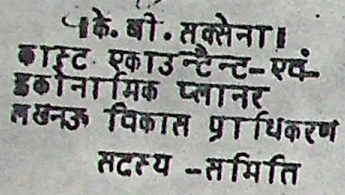 ।के. बी. सक्सेना।
कास्ट एकाउन्टैन्ट-एवं-
इकोनामिक प्लानर
लखनऊ विकास प्राधिकरण
सदस्य -समिति